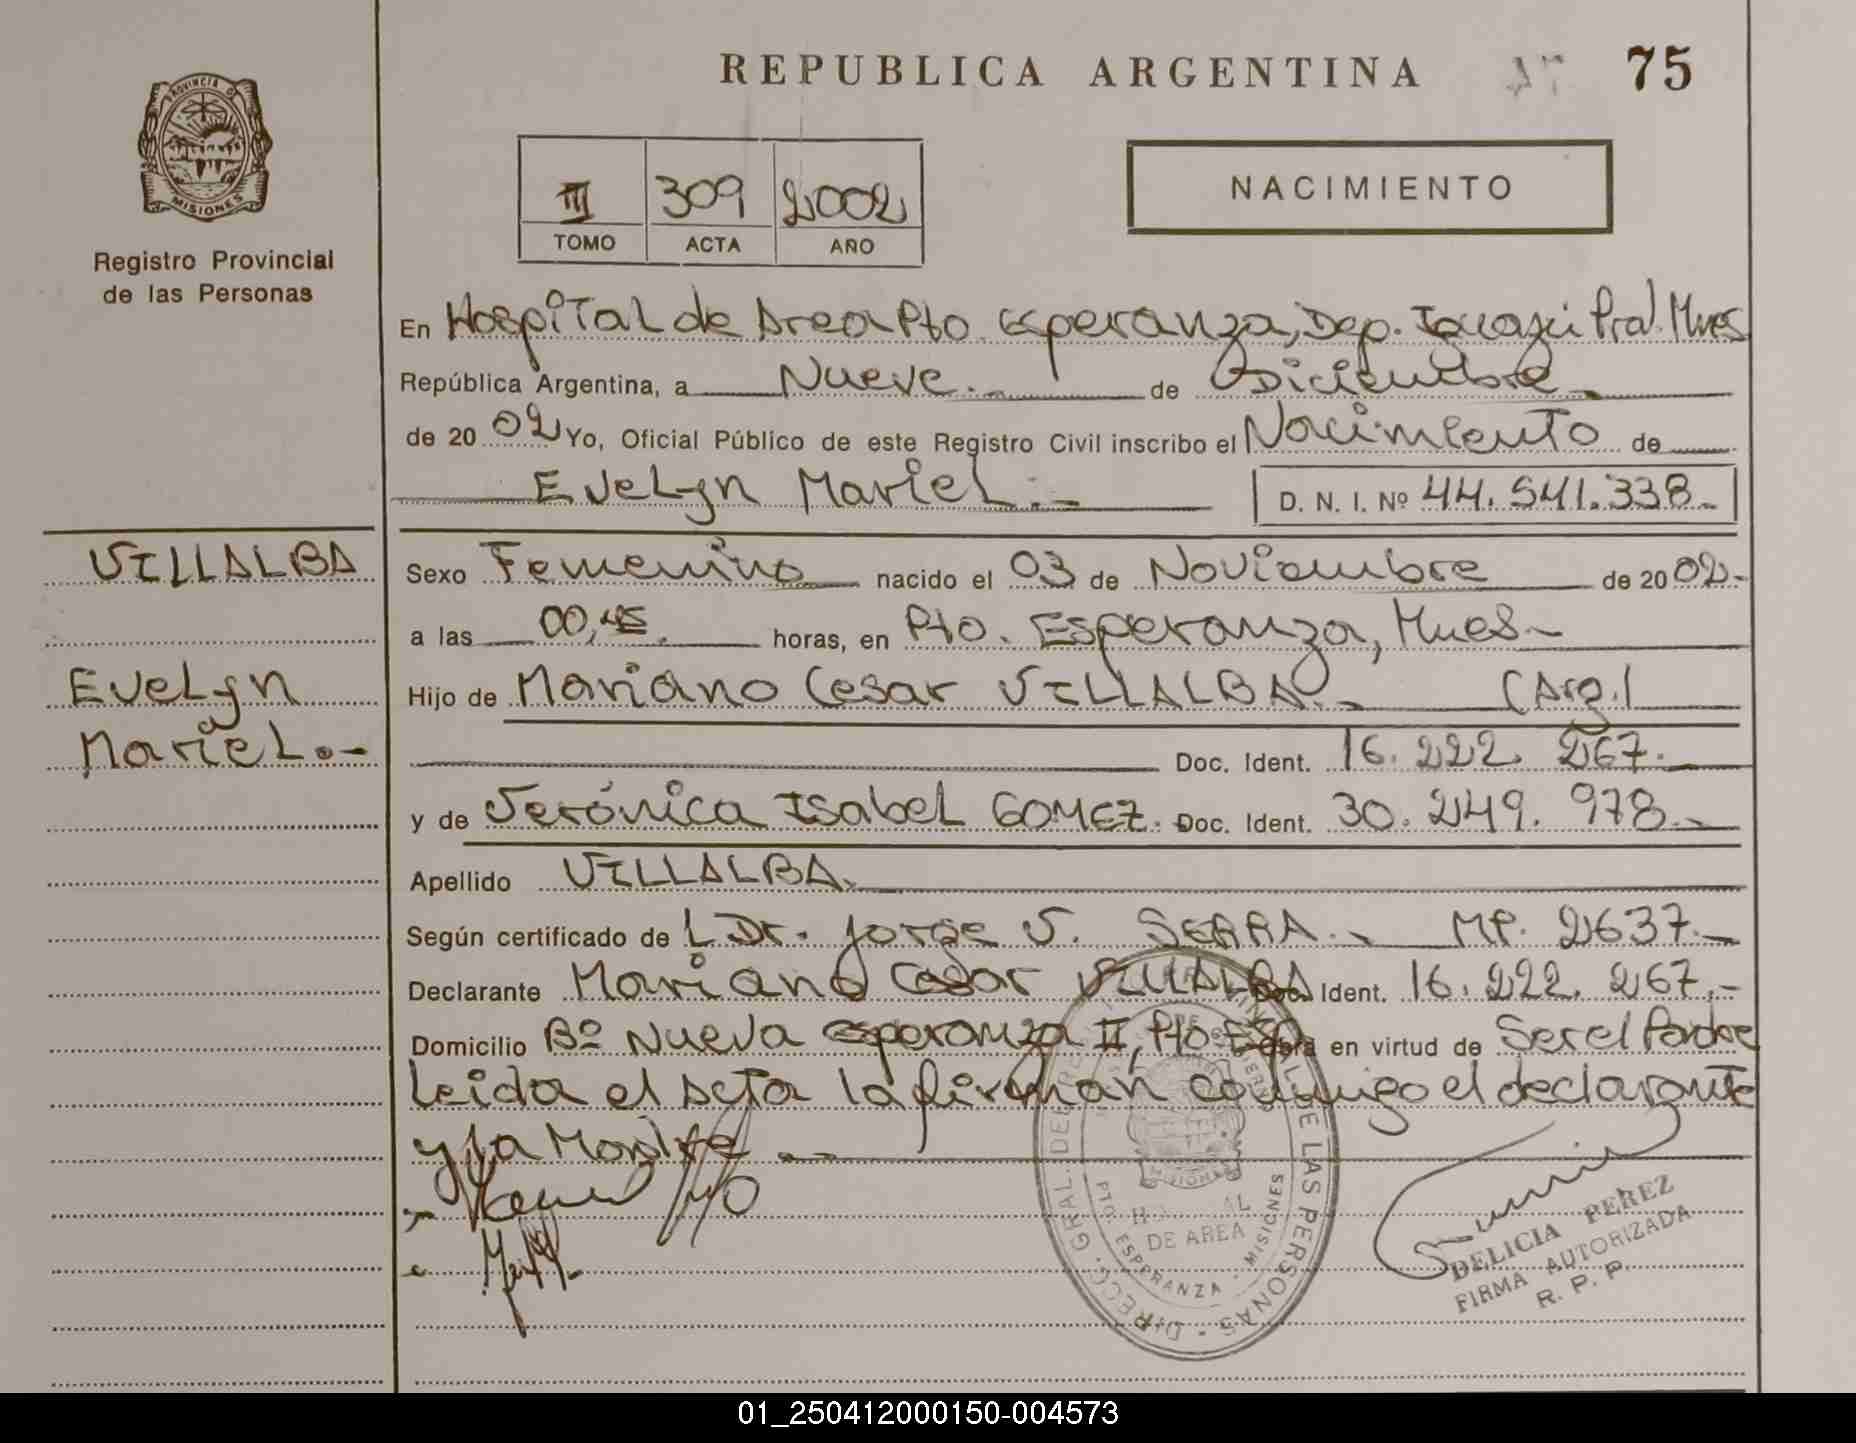 REPUBLICA ARGENTINA 75
PROVINCIA D
MISIONES
Registro Provincial
de las Personas
III 309 2002
TOMO ACTA AÑO
NACIMIENTO
En Hospital de Area Pto. Esperanza, Dep. Iguazú Prov. Mnes
República Argentina, a Nueve.- de Diciembre
de 20 02 Yo, Oficial Público de este Registro Civil inscribo el Nacimiento de
Evelyn Mariel.- D. N. I. Nº 44.541.338.-
VILLALBA
Evelyn
Mariel.-
Sexo Femenino nacido el 03 de Noviembre de 20 02.-
a las 00,45. horas, en Pto. Esperanza, Mnes.-
Hijo de Mariano Cesar VILLALBA.- (Arg.)
Doc. Ident. 16.222.267.-
y de Verónica Isabel GOMEZ. Doc. Ident. 30.249.978.-
Apellido VILLALBA.
Según certificado de L Dr. Jorge V. SERRA.- MP. 2637.-
Declarante Mariano Cesar VILLALBA Doc. Ident. 16.222.267.-
Domicilio Bº Nueva Esperanza II, Pto Esp. obra en virtud de Ser el Padre
Leida el Acta la firman conmigo el declarante
y la Madre.-
DIRECC. GRAL. DEL REGISTRO PROVINCIAL DE LAS PERSONAS
HOSPITAL
DE AREA
PTO. ESPERANZA - MISIONES
DELICIA PEREZ
FIRMA AUTORIZADA
R. P. P.
01_250412000150-004573